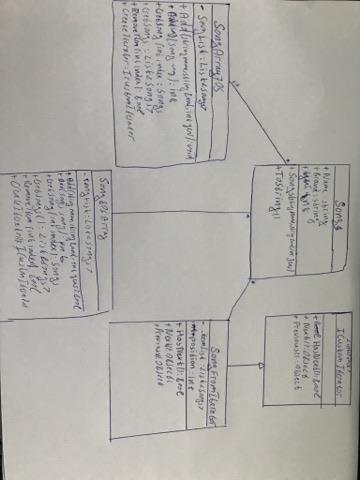 Songs
+ Name: string
+ Band: string
+ Songs(string name, string band, int year)
+ ToString()
ICustomIterator
+ HasNext(): Bool
+ Next(): Object
+ Previous(): Object
SongArray70S
- SongList: List<Songs>
+ Add(string name, string band, int year): void
+ Add(Song song): int
+ GetSong(int index): Songs
+ GetSongs: List<Songs>
+ RemoveItem(int index): Bool
+ CreateIterator: ICustomIterator
SongFromIterator
- itemList: List<Songs>
position: int
+ HasNext(): Bool
+ Next(): Object
+ Previous(): Object
Song60sArray
- songList: List<Songs>
+ Add(string name, string band, int year): Bool
+ Add(Songs song): int
+ GetSong(int index): Songs
+ GetSongs(): List<Songs>
+ RemoveItem(int index): Bool
+ CreateIterator(): ICustomIterator